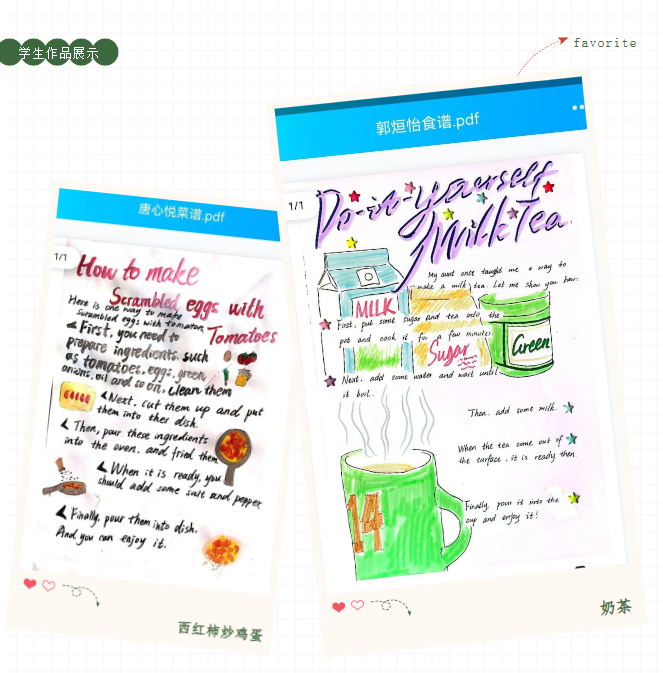 学生作品展示
favorite
唐心悦菜谱.pdf
1/1
How to make
Scrambled eggs with
Tomatoes
Here is one way to make
scrambled eggs with tomatoes.
First, you need to
prepare ingredients. such
as tomatoes. eggs. green
onions. oil and so on. clean them
Next. cut them up and put
them into ther dish.
Then, pour these ingredients
into the oven. and fried them
When it is ready, you
should add some salt and pepper
Finally, pour them into dish.
And you can enjoy it.
西红柿炒鸡蛋
郭烜怡食谱.pdf
1/1
Do-it-yourself
Milk Tea.
My aunt once taught me a way to
make a milk tea. Let me show you how.
MILK
First, put some sugar and tea into the
pot and cook it for a few minutes.
Sugar
Green
Next. add some water and wait until
it boil.
Then. add some milk.
When the tea come out of
the surface. it is ready then.
Finally, pour it into the
cup and enjoy it!
14
奶茶